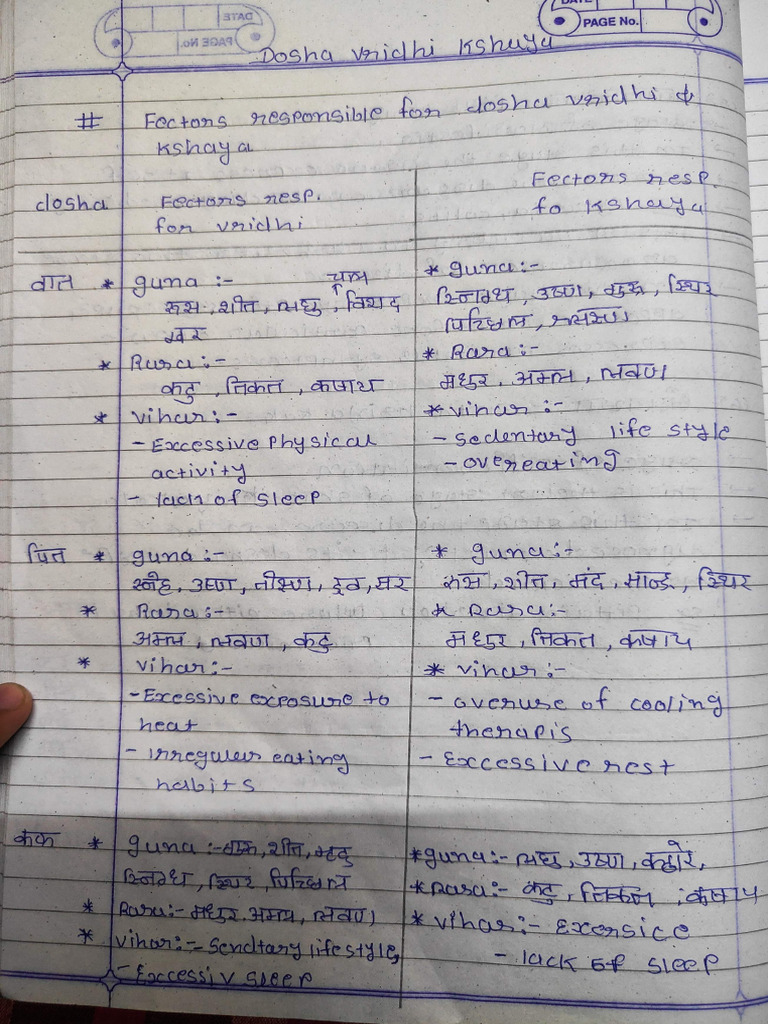 DATE
PAGE No.
Dosha Vridhi Kshaya
# Fectors responsible for dosha vridhi &
Kshaya
dosha Fectors resp. Fectors resp.
for vridhi fo Kshaya
वात * guna :- चल * guna:-
रूक्ष शीत, लघु, विशद स्निग्ध, उष्ण, गुरू, स्थिर
खर पिच्छिल, श्लक्ष्ण
* Rara:- * Rara:-
कटु, तिकत, कषाय मधुर, अम्ल, लवण
* vihar:- * vihar :-
- Excessive physical - Sedentary life style
activity - overeating
- lack of sleep
पित * guna :- * guna:-
स्नेह, उष्ण, तीक्ष्ण, द्रव, सर रूक्ष, शीत, मंद, सान्द्र, स्थिर
* Rara:- * Rara:-
अम्ल, लवण, कटु मधुर, तिकत, कषाय
* vihar:- * vihar:-
- Excessive exposure to - overuse of cooling
heat therapis
- Irreguler eating - Exccessive rest
habits
कफ * guna :- शीत, मृदु * guna:- लघु, उष्ण, कठोर,
स्निग्ध, स्थिर पिच्छिल * Rara:- कटु, तिकत, कषाय
* Rara:- मधुर, अमल, लवण * vihar:- Exersice
* vihar:- - Sendtary life style, - lack of sleep
- Exccessiv sleep